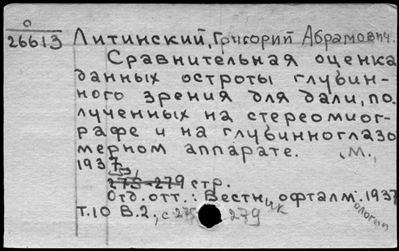 О
26613 Литинский, Григорий Абрамович.
Сравнительная оценка
данных остроты глубин-
ного зрения для дали, по-
лученных на стереомиог-
рафе и на глубинноглазо
мерном аппарате. М.,
1937
275-279 стр.
Отд. отт.: Вестник офтальмологии 1937
Т.10 В.2, с 275 279